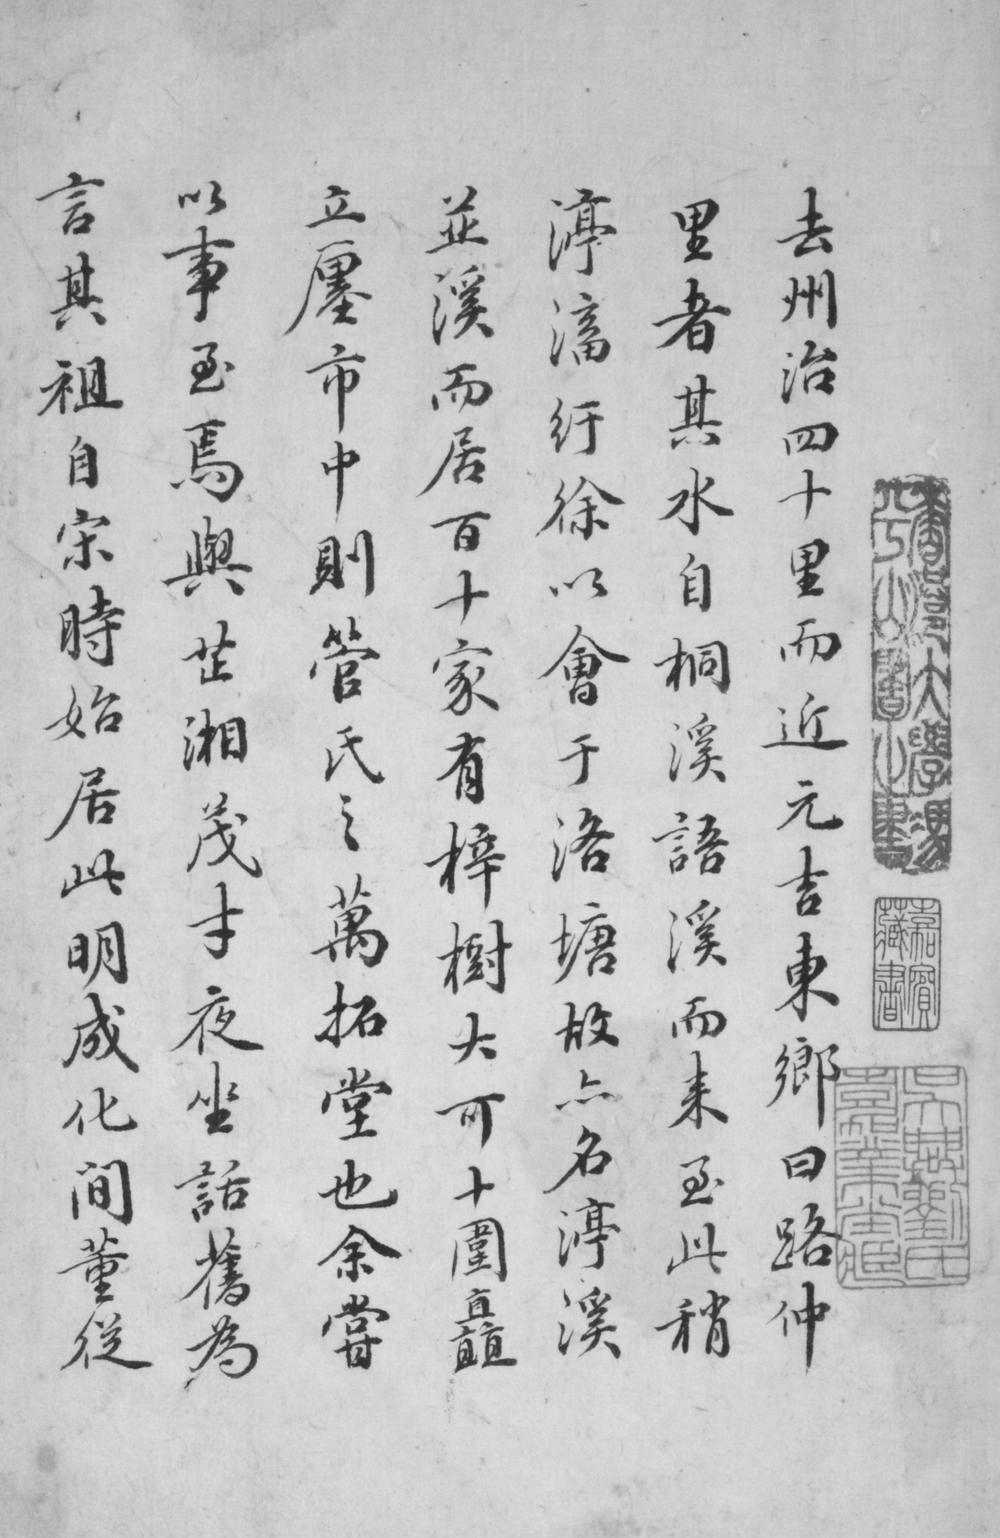 去州治四十里而近元吉東鄉曰路仲
里者其水自桐溪語溪而来至此稍
渟滀紆徐以會于洛塘故亦名渟溪
並溪而居百十家有梓樹大可十圍矗
立廛市中則管氏之萬拓堂也余嘗
以事至焉與芷湘茂才夜坐話舊為
言其祖自宋時始居此明成化間董從
嘉賓
藏書
吳興劉氏
嘉業堂